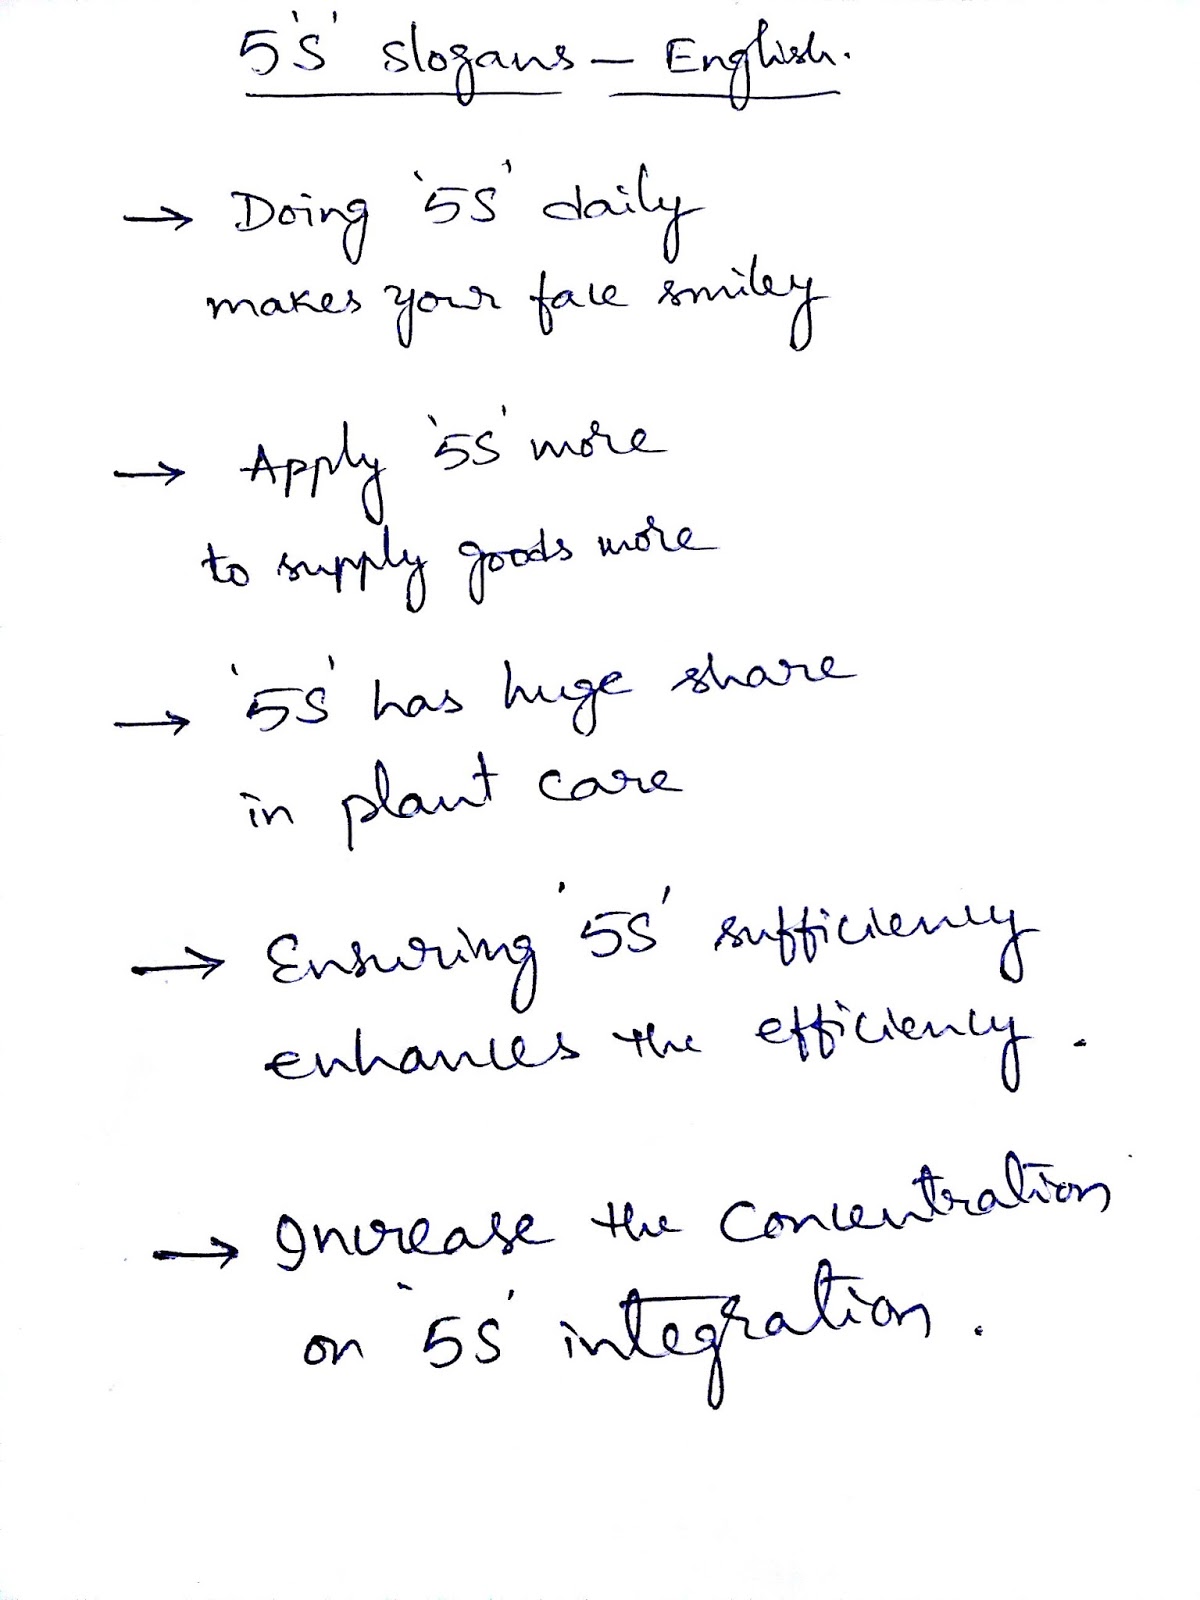 5'S' slogans – English.
→ Doing '5S' daily
makes your face smiley
→ Apply '5S' more
to supply goods more
→ '5S' has huge share
in plant care
→ Ensuring '5S' sufficiency
enhances the efficiency.
→ Increase the concentration
on '5S' integration.